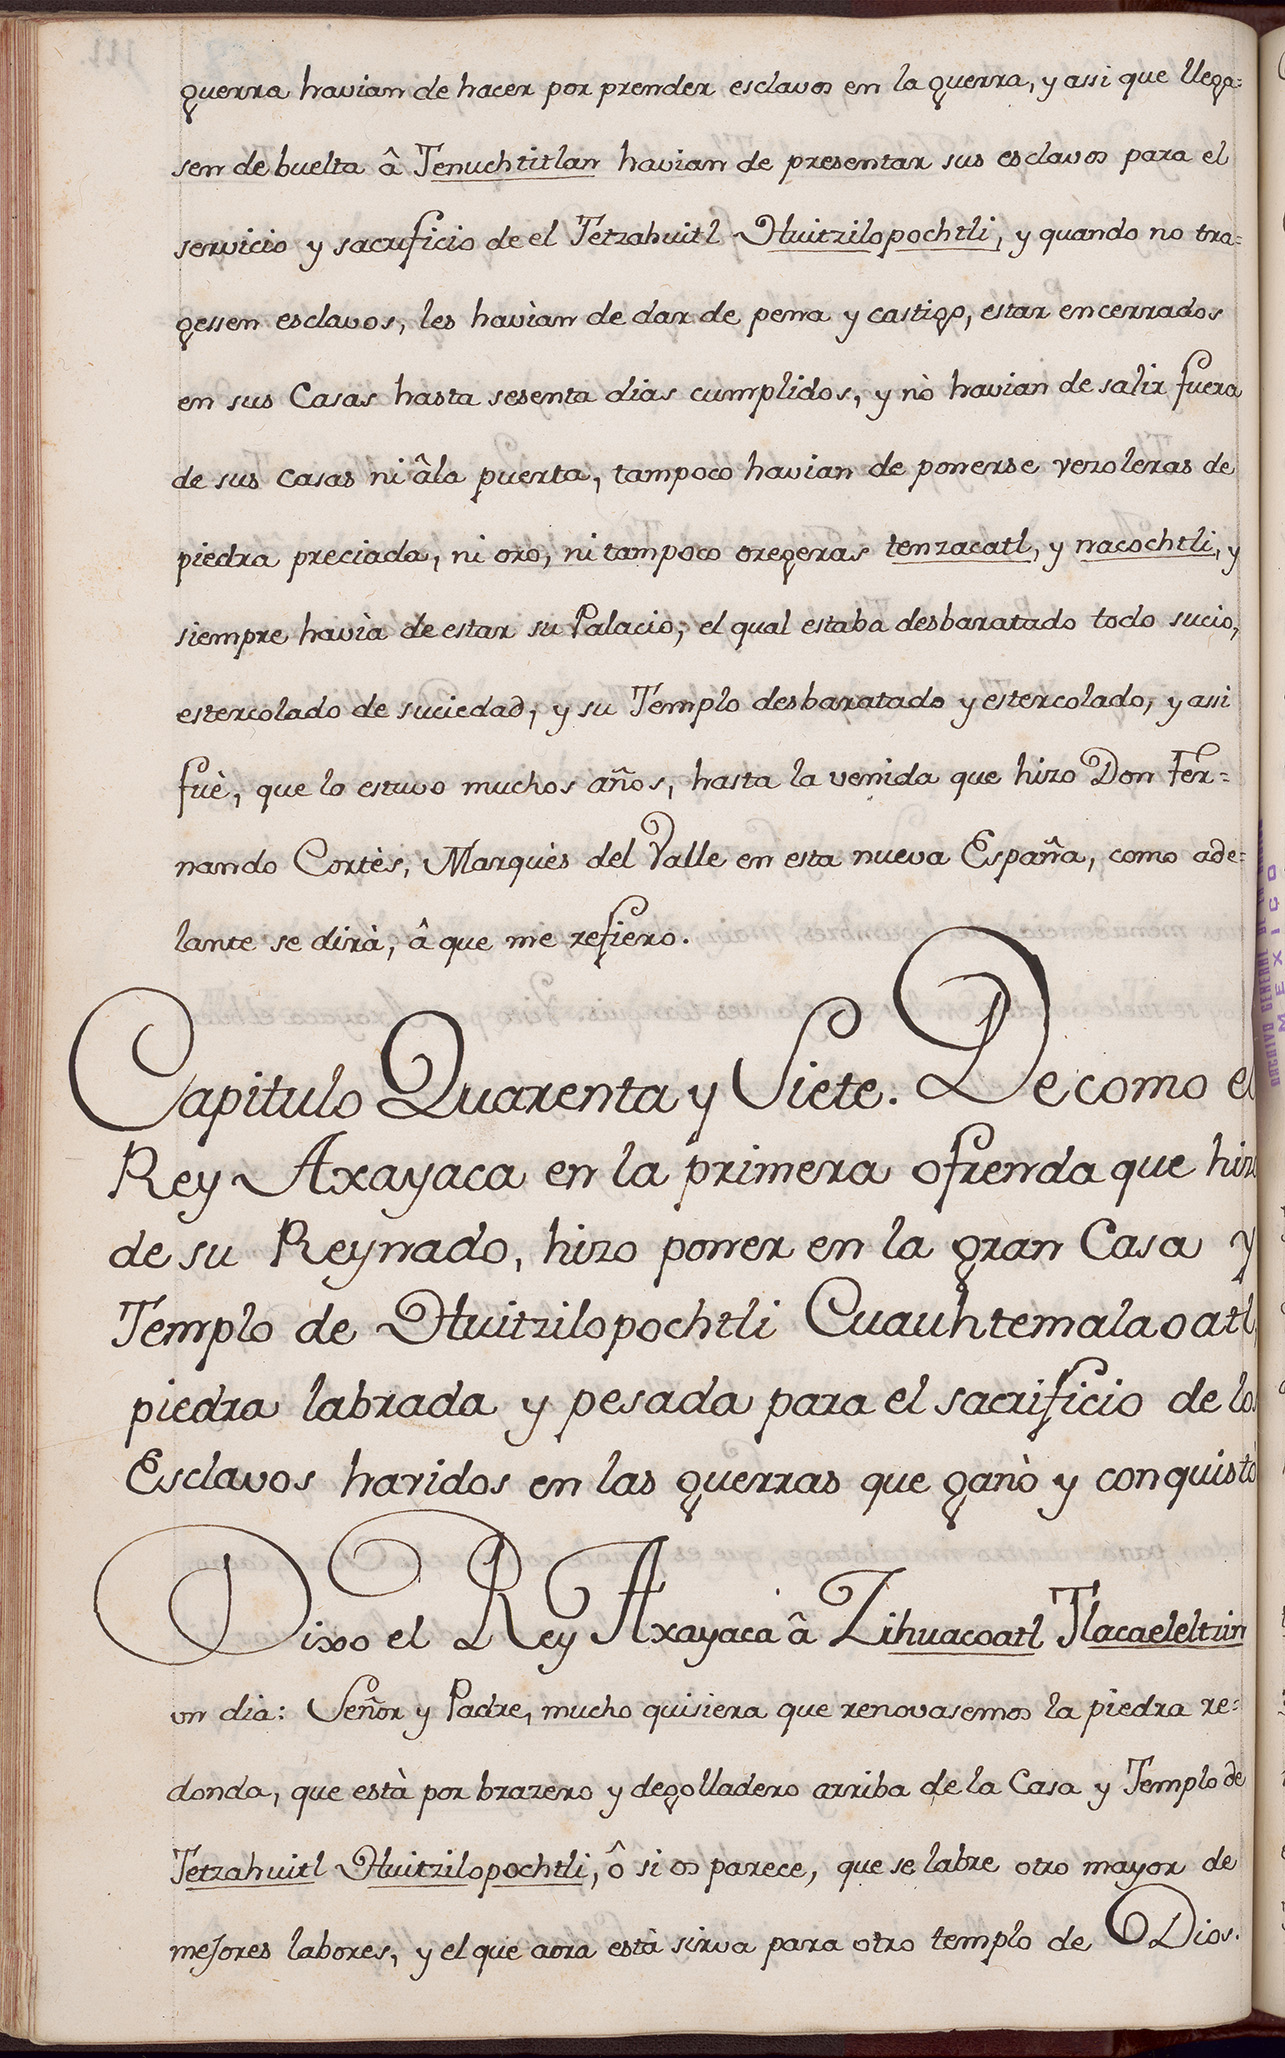 guerra havian de hacer por prender esclavos en la guerra, y assi que llega=
sen de buelta â Tenuchtitlan havian de presentar sus esclavos para el
servicio y sacrificio de el Tetzahuitl Huitzilopochtli, y quando no tra=
gessen esclavos, les havìan de dar de pena y castigo, estar encerrados
en sus Casas hasta sesenta dias cumplidos, y nò havian de salir fuera
de sus casas ni âla puerta, tampoco havian de ponerse vezoleras de
piedra preciada, ni oro, ni tampoco oregeras tenzacatl, y nacochtli, y
siempre havìa de estar su Palacio, el qual estaba desbaratado todo sucio,
estercolado de suciedad, y su Templo desbaratado y estercolado, y assi
fuè, que lo estuvo muchos años, hasta la venida que hizo Don Fer=
nando Cortès, Marquès del Valle en esta nueva España, como ade=
lante se dirà, â que me refiero.
Capitulo Quarenta y Siete. De como el
Rey Axayaca en la primera ofrenda que hizo
de su Reynado, hizo poner en la gran Casa y
Templo de Huitzilopochtli Cuauhtemalaoatl,
piedra labrada y pesada para el sacrificio de los
Esclavos havidos en las guerras que ganò y conquistò
Dixo el Rey Axayaca â Zihuacoatl Tlacaeleltzin
un dia: Señor y Padre, mucho quisiera que renovasemos la piedra re=
donda, que està por brazero y degolladero arriba de la Casa y Templo de
Tetzahuitl Huitzilopochtli, ô si os parece, que se labre otro mayor de
mejores labores, y el que aora està sirva para otro templo de Dios.
ARCHIVO GENERAL DE LA
MEXICO